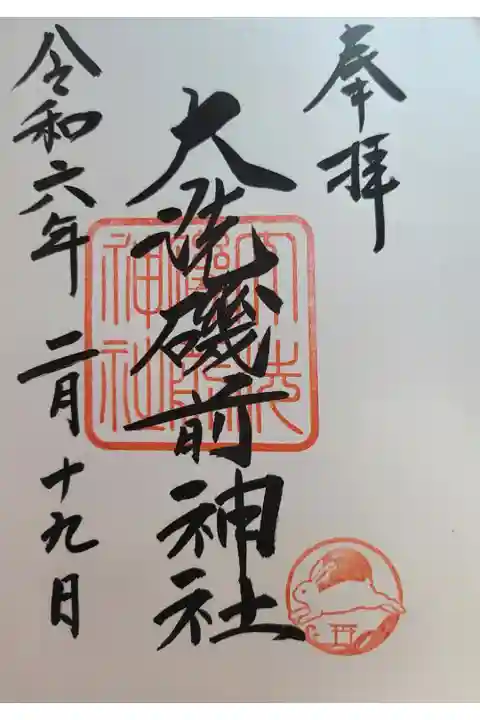 奉拝
大洗磯前神社
令和六年二月十九日
大洗
磯前
神社